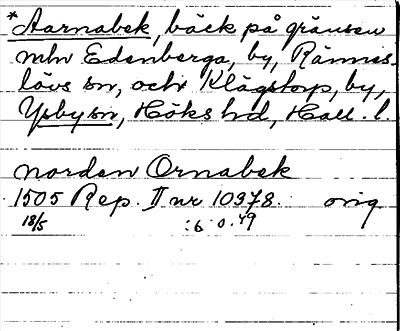 *Aarnabek, bäck på gränsen
mln Edenberga, by, Rännes-
lövs sn, och Klägstorp, by,
Ysby sn, Höks hd, Hall. l.
norden Ornabek
1505 Rep. II nr 10978. orig
18/5 :6 0.49